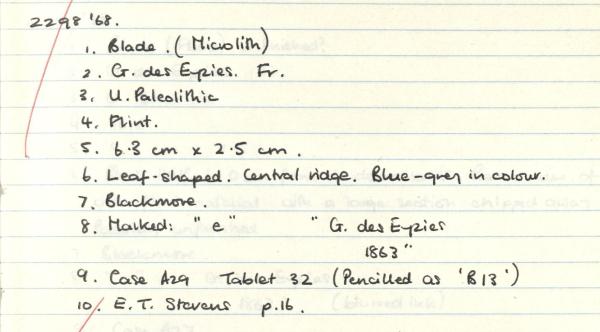 2298 '68.
1. Blade. (Microlith)
2. G. des Eyzies. Fr.
3. U. Paleolithic
4. Flint.
5. 6.3 cm x 2.5 cm.
6. Leaf-shaped. Central ridge. Blue-grey in colour.
7. Blackmore.
8. Marked: "e" "G. des Eyzies
1863"
9. Case A29 Tablet 32 (Pencilled as 'B13')
10. E.T. Stevens p.16.